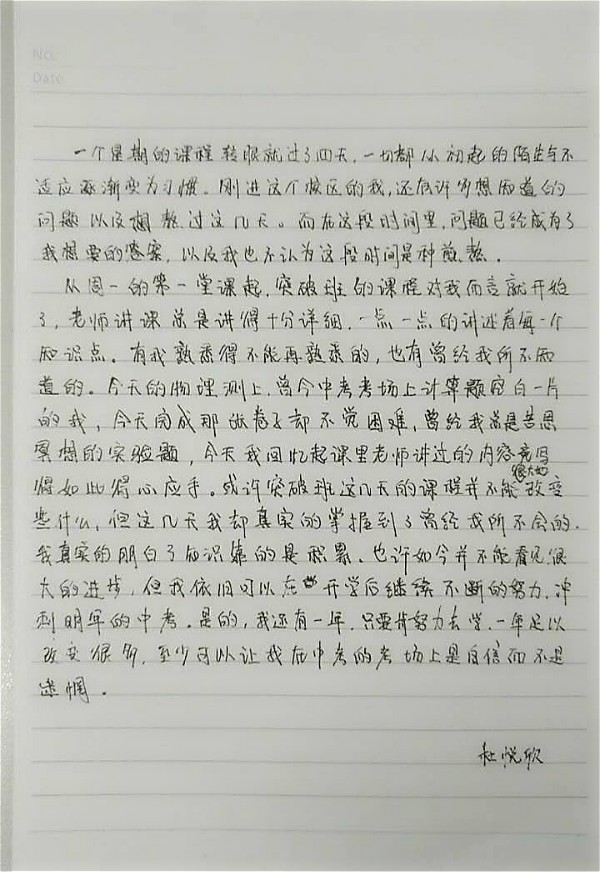 No.
Date
一个星期的课程转眼就过了四天,一切都从初起的陌生与不
适应逐渐变为习惯。刚进这个校区的我,还有许多想知道的
问题以及想熬过这几天。而在这段时间里,问题已经成为了
我想要的答案,以及我也不认为这段时间是种煎熬.
从周一的第一堂课起,突破班的课程对我而言就开始
了,老师讲课总是讲得十分详细,一点一点的讲述着每一个
知识点。有我熟悉得不能再熟悉的,也有曾经我所不知
道的。今天的物理测上,曾今中考考场上计算题空白一片
的我,今天完成那张卷子却不觉困难,曾经我总是苦思
冥想的实验题,今天我回忆起课里老师讲过的内容竟写
得如此得心应手。或许突破班这几天的课程并不能很大的改变
些什么,但这几天我却真实的掌握到了曾经我所不会的.
我真实的明白了知识靠的是积累.也许如今并不能看见很
大的进步,但我依旧可以在开学后继续不断的努力,冲
刺明年的中考.是的,我还有一年,只要肯努力去学,一年足以
改变很多,至少可以让我在中考的考场上是自信而不是
迷惘.
杜悦欣